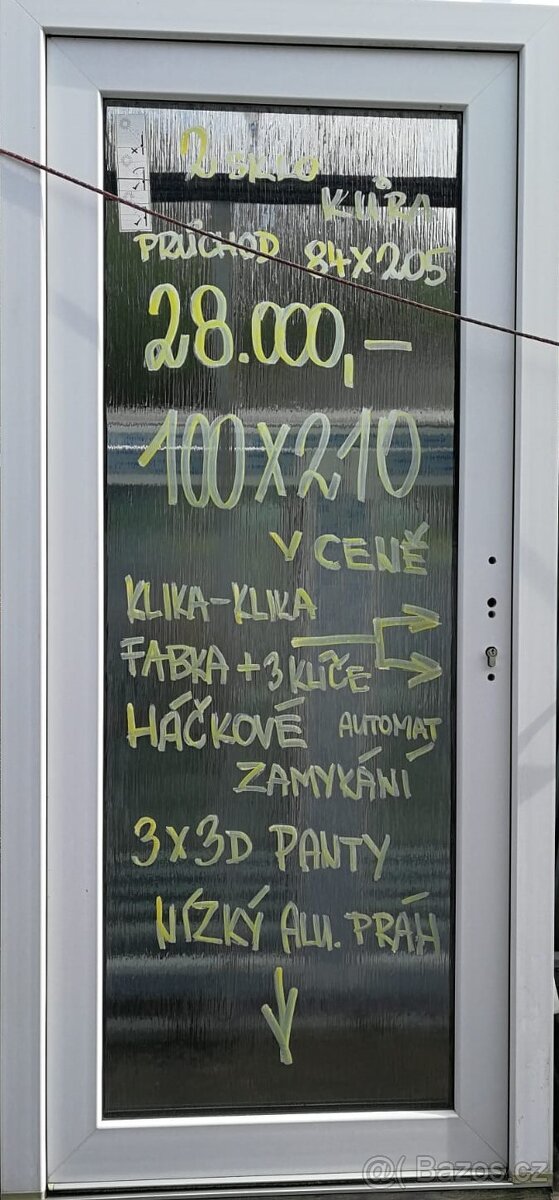 2 SKLO
KŮRA
PRŮCHOD 84X205
28.000,-
100X210
V CENĚ
KLIKA-KLIKA
FABKA + 3 KLÍČE
HÁČKOVÉ AUTOMAT
ZAMYKÁNÍ
3X3D PANTY
NÍZKÝ ALU. PRÁH
Bazos.cz